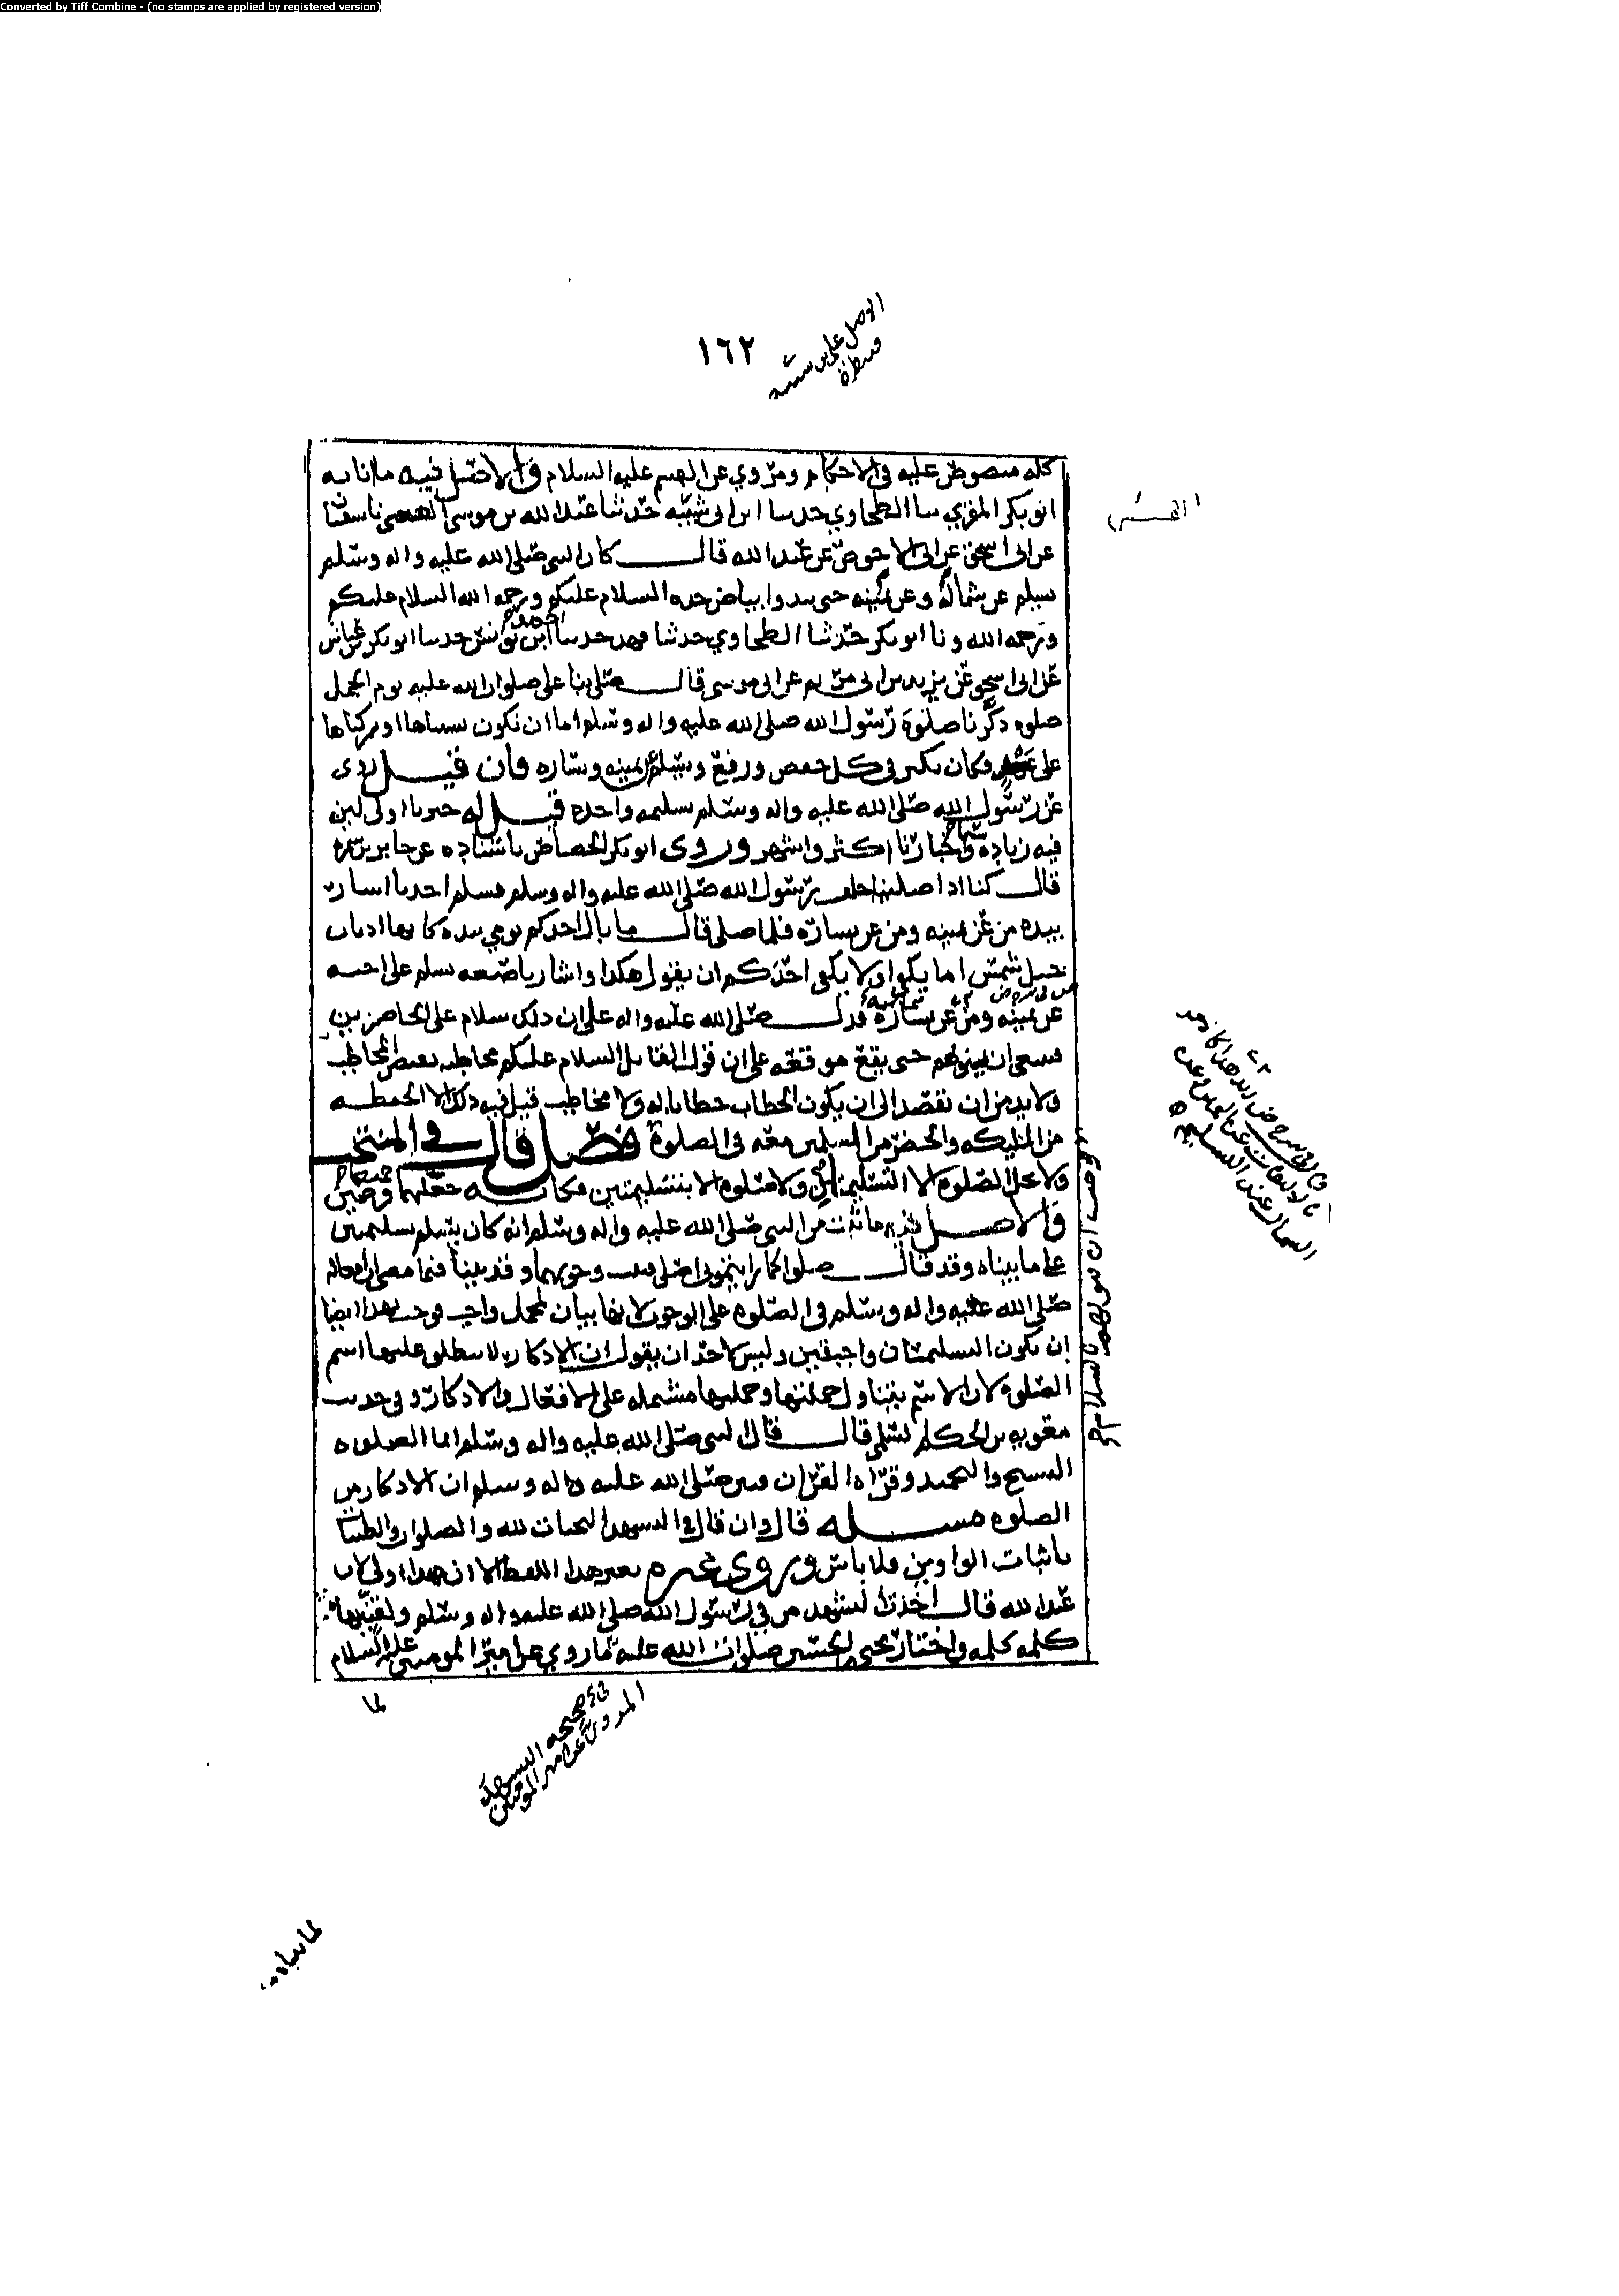 Converted by Tiff Combine - (no stamps are applied by registered version)
١٦٢
كله منصوص عليه في الاحكام ومروي عن القسم عليه السلام والاصل فيه ما انا به
ابو بكر المقري نا الطحاوي حدثنا ابن ابي شيبه حدثنا عبد الله بن موسى العبسي نا سفيان
عن ابي اسحق عن ابي الاحوص عن عبد الله قال كان النبي صلى الله عليه واله وسلم
يسلم عن شماله وعن يمينه حتى يبدوا بياض خده السلام عليكم ورحمه الله السلام عليكم
ورحمه الله ونا ابو بكر حدثنا الطحاوي حدثنا فهد حدثنا احمد بن يونس حدثنا ابو بكر بن عياش
عن ابي اسحق عن يزيد بن ابي مريم عن ابي موسى قال صلى بنا علي صلوات الله عليه يوم الجمل
صلوه ذكرنا صلوة رسول الله صلى الله عليه واله وسلم اما ان نكون نسيناها او تركناها
على عمد فكان يكبر في كل خفض ورفع ويسلم عن يمينه ويساره فان قيل روي
عن رسول الله صلى الله عليه واله وسلم تسليمه واحده قيل له خبرنا اولى لان
فيه زيادة واخبارنا اكثر واشهر وروى ابو بكر الجصاص باسناده عن جابر بن سمره
قال كنا اذا صلينا خلف رسول الله صلى الله عليه واله وسلم فسلم احدنا اشار
بيده من عن يمينه ومن عن يساره فلما صلى قال ما بال احدكم يومي بيده كانها اذناب
خيل شمس اما يكفي او لا يكفي احدكم ان يقول هكذا واشار باصبعه يسلم على اخيه
عن يمينه ومن عن يساره فدل صلى الله عليه واله على ان ذلك سلام على الحاضرين
فينبغي ان ينويهم حتى يقع موقعه على ان قول القايل السلام عليكم مخاطبه يقتضي المخاطب
ولا بد من ان يقصد الى ان يكون الخطاب خطابا له ولا مخاطب قيل فيه ذلك الا الحفظه
من الملايكه والحضر من المسلمين معه في الصلوة فصل قال في المنتخب
ولا تحل الصلوه الا التسليمتان ولا صلوه الا بتسليمتين فكانه جعلهما فرضين
والاصل فيه ما ثبت من النبي صلى الله عليه واله وسلم انه كان يسلم تسليمتين
على ما بيناه وقد قال صلوا كما رايتموني اصلي فثبت وجوبهما وقد بينا فيما مضى ان افعاله
صلى الله عليه واله وسلم في الصلوه على الوجوب لانها بيان لمجمل واجب فوجب بهذا ايضا
ان تكون التسليمتان واجبتين وليس لاحد ان يقول ان الاذكار لا ينطلق عليها اسم
الصلوه لان الاسم يتناول جملتها وجملتها مشتمله على الافعال والاذكار وفي حديث
معويه بن الحكم السلمي قال قال النبي صلى الله عليه واله وسلم انما الصلوه
التسبيح والتحميد وقراه القران فبين صلى الله عليه واله وسلم ان الاذكار من
الصلوه مسله قال وان قال في التشهد التحيات لله والصلوات والطيبات
باثبات الواوين فلا باس وروي غيره بغير هذا اللفظ الا ان هذا اولى لان
عبد الله قال اخذت التشهد من في رسول الله صلى الله عليه واله وسلم ولقنيها
كلمه كلمه واختار يحيى بن الحسين صلوات الله عليه ما روي عن امير المومنين عليه السلام
لما